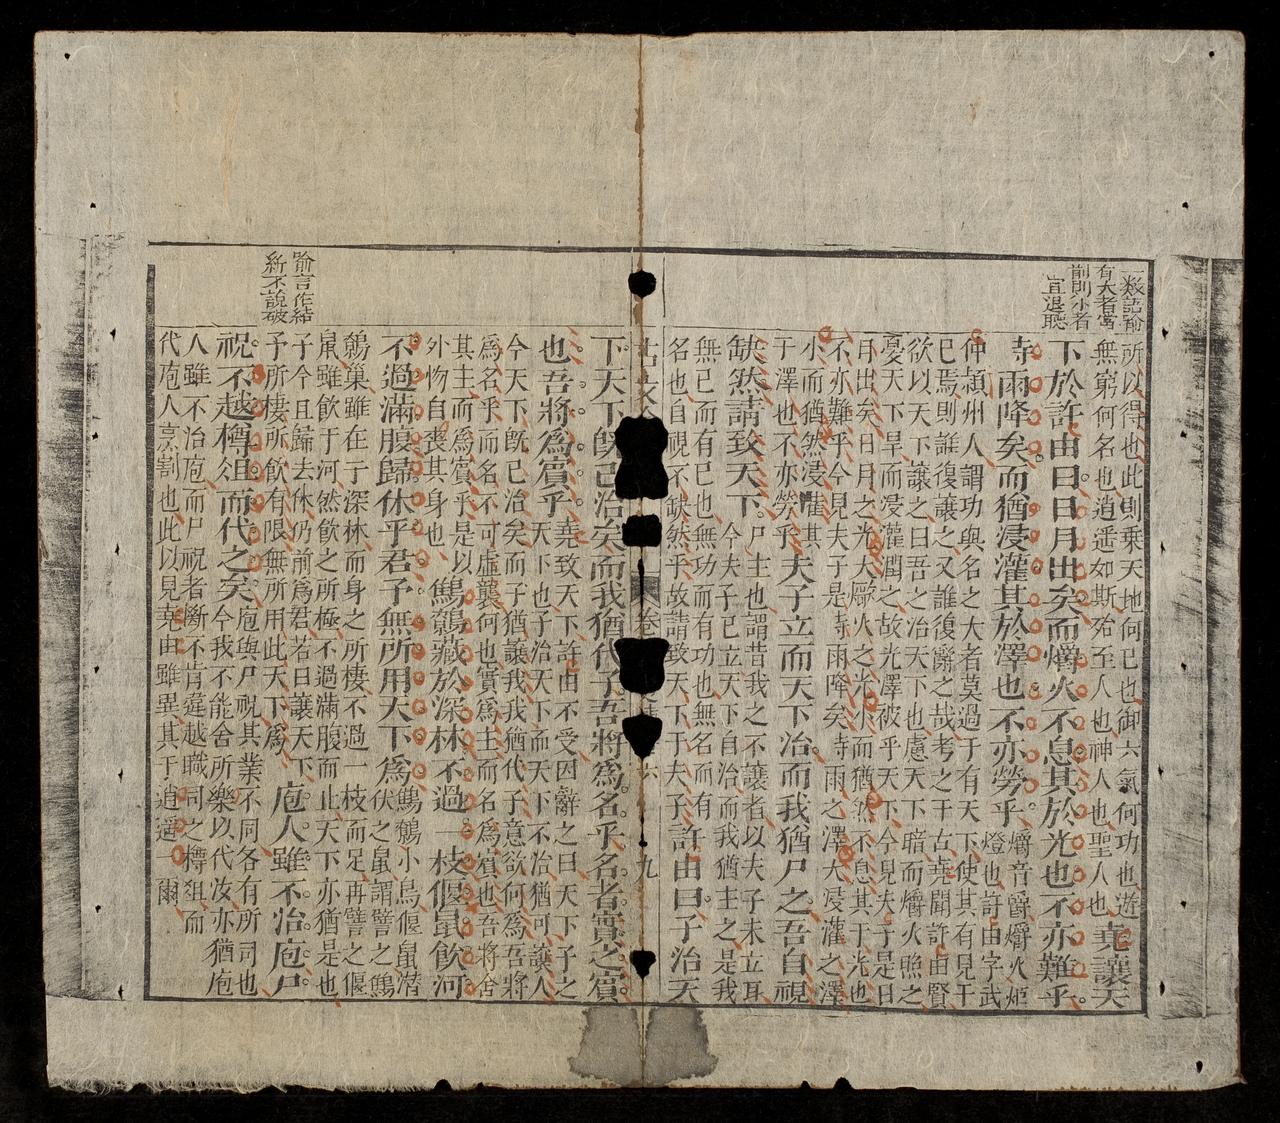 一繁語喻
有大者當
前則小者
宜退聽
所以得也此則乘天地何已也御六氣何功也遊
無窮何名也逍遥如斯殆至人也神人也聖人也堯讓天
下於許由曰日月出矣而爝火不息其於光也不亦難乎
時雨降矣而猶浸灌其於澤也不亦勞乎爝音爵爝火炬
燈也許由字武
仲頴州人謂功與名之大者莫過于有天下使其有見于
已焉則誰復讓之又誰復辭之哉考之于古堯聞許由賢
欲以天下讓之曰吾之治天下也慮天下暗而爝火照之
憂天下旱而浸灌潤之故光澤被乎天下今見夫子是日
月出矣日月之光大爝火之光小而猶然不息其于光也
不亦難乎今見夫子是時雨降矣時雨之澤大浸灌之澤
小而猶然浸灌其
于澤也不亦勞乎夫子立而天下治而我猶尸之吾自視
缺然請致天下尸主也謂昔我之不讓者以夫子未立耳
今夫子已立天下自治而我猶主之是我
無已而有已也無功而有功也無名而有
名也自視不缺然乎故請致天下于夫子許由曰子治天
卷
九
下天下旣已治矣而我猶代子吾將爲名乎名者實之賓
也吾將爲賓乎堯致天下許由不受因辭之曰天下子之
天下也子治天下而天下不治猶可讓人
今天下旣已治矣而子猶讓我我猶代子意欲何爲吾將
爲名乎而名不可虛襲何也實爲主而名爲賓也吾將舍
其主而爲賓乎是以
外物自喪其身也鷦鷯藏於深林不過一枝偃鼠飲河
不過滿腹歸休乎君予無所用天下爲鷦鷯小鳥偃鼠潛
伏之鼠謂譬之鷦
鷯巢雖在于深林而身之所棲不過一枝而足再譬之偃
鼠雖飲于河然飲之所極不過滿腹而止天下亦猶是也
子今且歸去休仍前爲君若曰讓天下
予所棲所飲有限無所用此天下爲庖人雖不治庖尸
祝不越樽俎而代之矣庖與尸祝其業不同各有所司也
今我不能舍所樂以代汝亦猶庖
人雖不治庖而尸祝者斷不肯違越職司之樽俎而
代庖人烹割也此以見堯由雖異其于逍遥一爾
喻言作結
新不說破